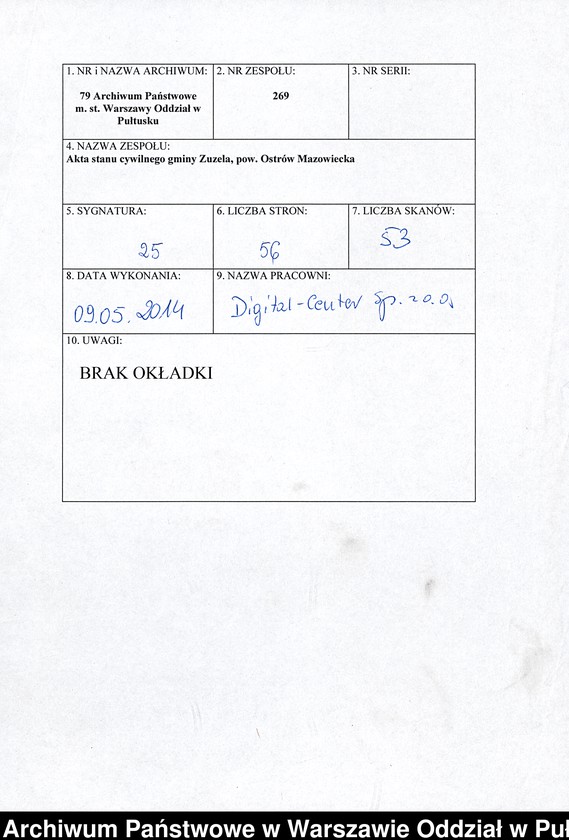 1. NR i NAZWA ARCHIWUM:
79 Archiwum Państwowe
m. st. Warszawy Oddział w
Pułtusku
2. NR ZESPOŁU:
269
3. NR SERII:
4. NAZWA ZESPOŁU:
Akta stanu cywilnego gminy Zuzela, pow. Ostrów Mazowiecka
5. SYGNATURA:
25
6. LICZBA STRON:
56
7. LICZBA SKANÓW:
53
8. DATA WYKONANIA:
09.05.2014
9. NAZWA PRACOWNI:
Digital-Center Sp. z o.o.
10. UWAGI:
BRAK OKŁADKI
Archiwum Państwowe w Warszawie Oddział w Puł